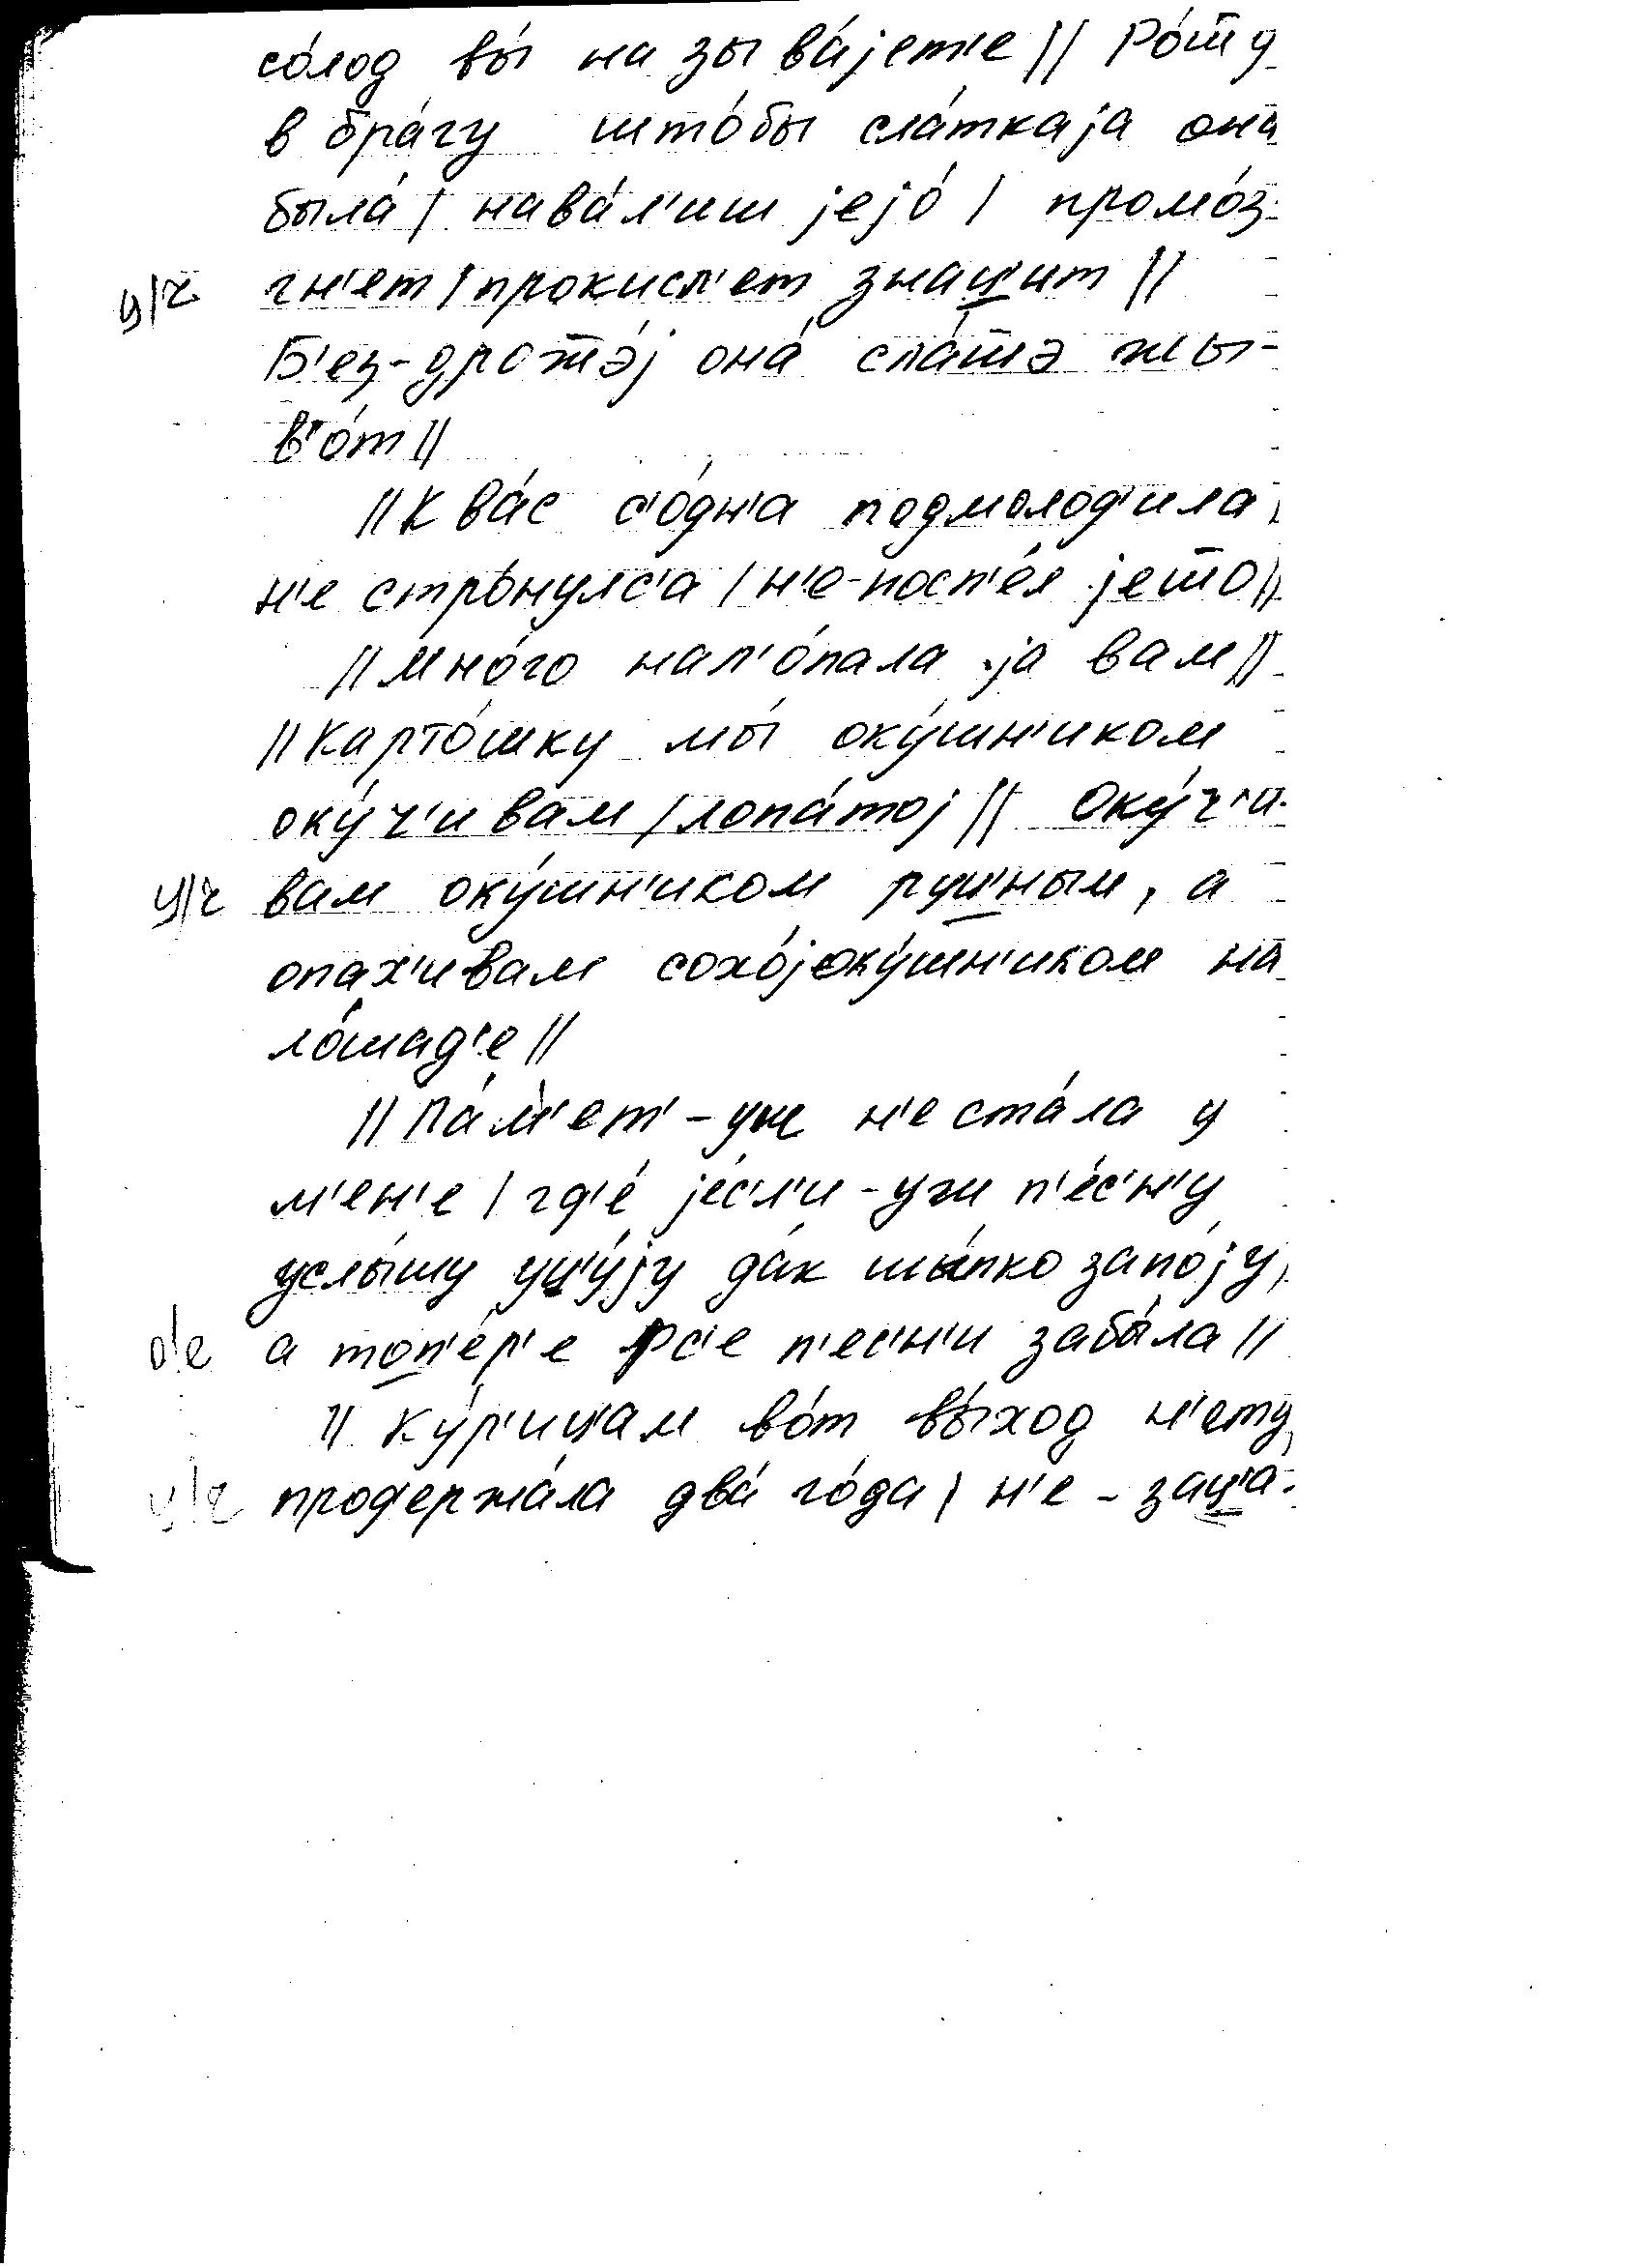 со́лод вы́ на зыва́јет'е || Ро́т̅у
в бра́гу што́бы сла́ткаја она
была́ | нава́л'иш јејо́ | промо́з-
ц/ч гн'ет | прокисн'ет знац'ит ||
Б'ез-дрот̅э́ј она́ сла́т̅э жы-
в'о́т ||
|| Ква́с с'о́дн'а подмолод'ила,
н'е стро́нулс'а | н'е-посп'е́л јет̅о ||
|| Мно́го нал'о́пала ја вам ||
|| Карто́шку мы́ оку́шн'иком
оку́ч'ивам | лопа́тој || Оку́ч'и-
ц/ч вам оку́шн'иком руц'ным, а
опах'ивам сохо́ј оку́шн'иком на
ло́шад'е ||
|| Па́м'ет'-уж н'е ста́ла у
м'ен'е | гд'е́ је́с'л'и-ужи п'е́с'н'у
услы́шу уц'у́ју да́к шы́пко запо́ју,
о/е а топ'е́р'е фс'е п'ес'н'и забы́ла ||
|| Ку́р'ицам во́т вы́ход н'ету,
ц/ч прод'ержа́ла два́ го́да | н'е-зац'а-